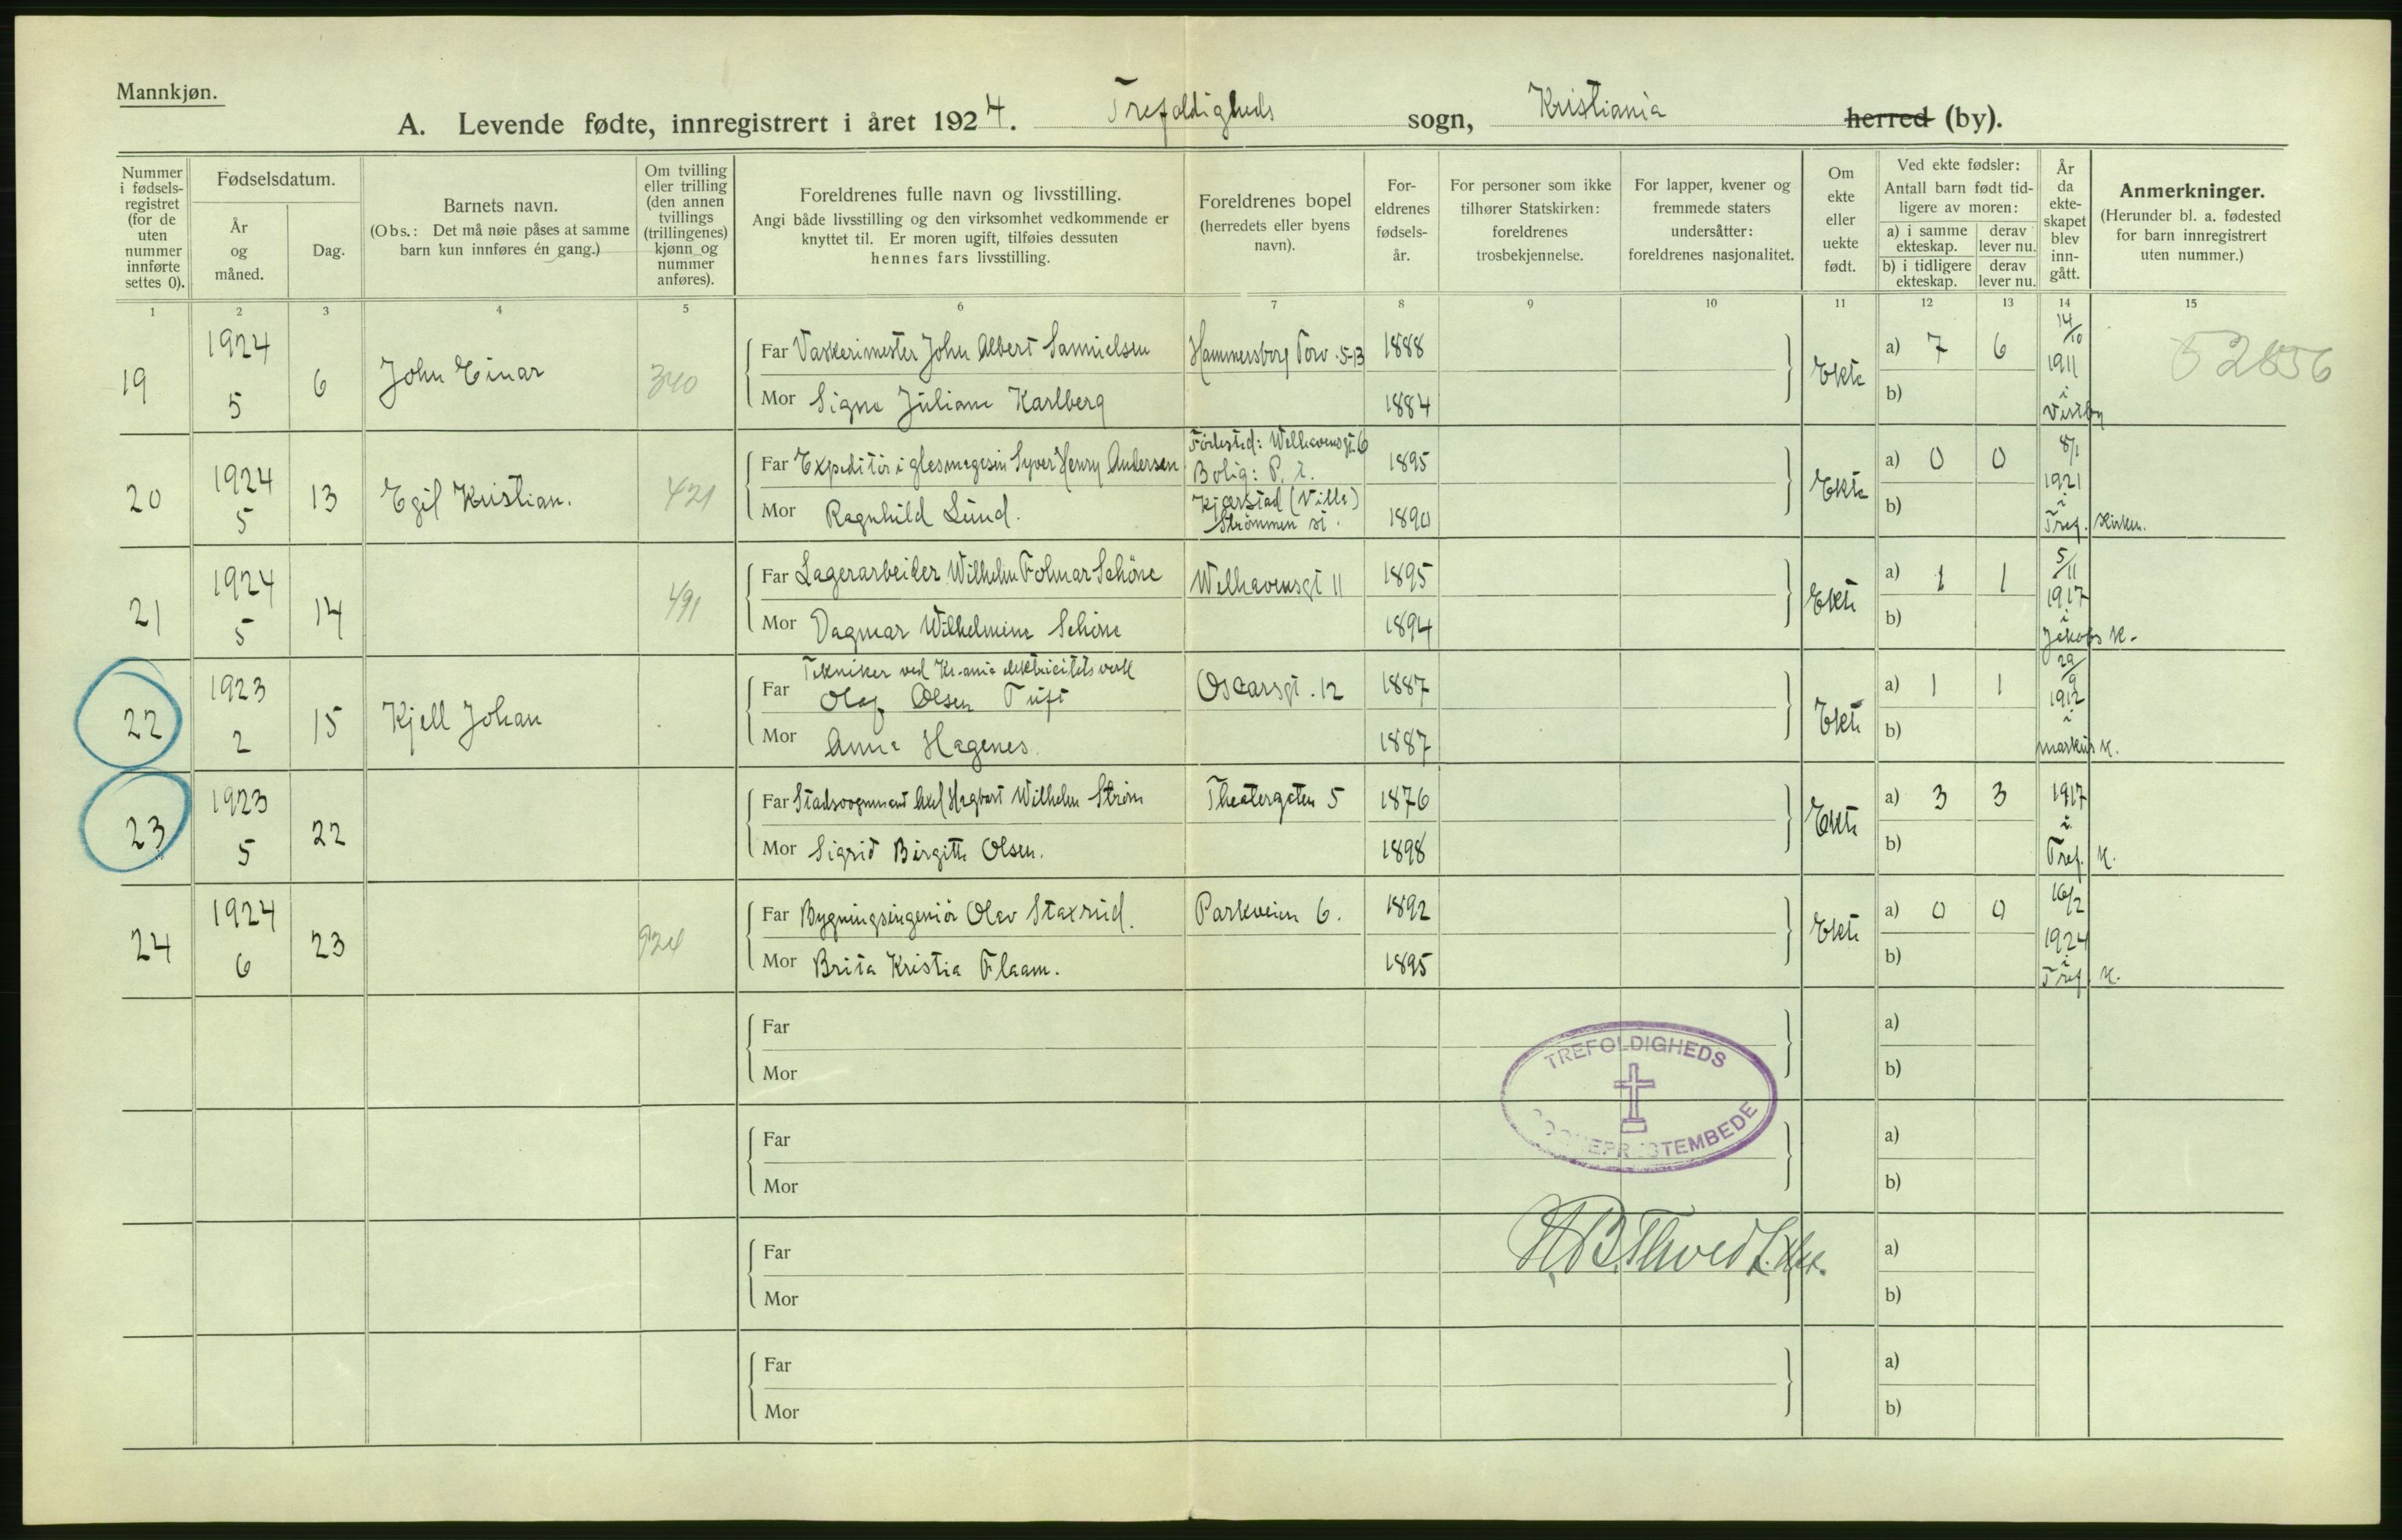 Mannkjøn.
A. Levende fødte, innregistrert i året 1924. Trefoldigheds sogn, Kristiania herred (by).
Nummer i fødsels-registret (for de uten nummer innførte settes 0).
Fødselsdatum.
År og måned.
Dag.
Barnets navn.
(Obs.: Det må nøie påses at samme barn kun innføres én gang.)
Om tvilling eller trilling (den annen tvillings (trillingenes) kjønn og nummer anføres).
Foreldrenes fulle navn og livsstilling.
Angi både livsstilling og den virksomhet vedkommende er knyttet til. Er moren ugift, tilføies dessuten hennes fars livsstilling.
Foreldrenes bopel (herredets eller byens navn).
For-eldrenes fødsels-år.
For personer som ikke tilhører Statskirken: foreldrenes trosbekjennelse.
For lapper, kvener og fremmede staters undersåtter: foreldrenes nasjonalitet.
Om ekte eller uekte født.
Ved ekte fødsler:
Antall barn født tid-ligere av moren:
a) i samme ekteskap. derav lever nu.
b) i tidligere ekteskap. derav lever nu.
År da ekte-skapet blev inn-gått.
Anmerkninger.
(Herunder bl. a. fødested for barn innregistrert uten nummer.)
1 2 3 4 5 6 7 8 9 10 11 12 13 14 15
19 1924 5 6 John Einar 340
Far Vaskerimester John Albert Samuelsen Hammersborg Torv. 5-13 1888
Mor Signe Juliane Karlberg 1884
Ekte a) 7 6 b) 14/10 1911 i Vestby
52856
20 1924 5 13 Egil Kristian. 421
Far Expeditör i glasmagasin Syver Henry Andersen 1895
Mor Ragnhild Lund. 1890
Födested: Welhavensgt. 6
Bolig: P. t.
Kjærstad (Villa)
Strömmen st.
Ekte a) 0 0 b) 8/1 1921 i Tref. Kirken.
21 1924 5 14 491
Far Lagerarbeider Wilhelm Folmar Schöne Welhavensgt 11 1895
Mor Dagmar Wilhelmine Schöne 1894
Ekte a) 1 1 b) 5/11 1917 i Jakobs K.
22 1923 2 15 Kjell Johan
Tekniker ved Kr.ania elektricitetsverk
Far Olaf Olsen Tuft Oscarsgt. 12 1887
Mor Anna Hagenes. 1887
Ekte a) 1 1 b) 29/9 1912 i Markus K.
23 1923 5 22
Far Stadsvognmand Axel Hagbart Wilhelm Ström Theatergaten 5 1876
Mor Sigrid Birgitte Olsen. 1898
Ekte a) 3 3 b) 1917 i Tref. K.
24 1924 6 23 924
Far Bygningsingeniör Olav Staxrud. Parkveien 6. 1892
Mor Brita Kristia Flaam. 1895
Ekte a) 0 0 b) 16/2 1924 i Tref. K.
Far a)
Mor b)
TREFOLDIGHEDS
Far a)
Mor b)
Far a)
Mor b)
Far a)
Mor b)